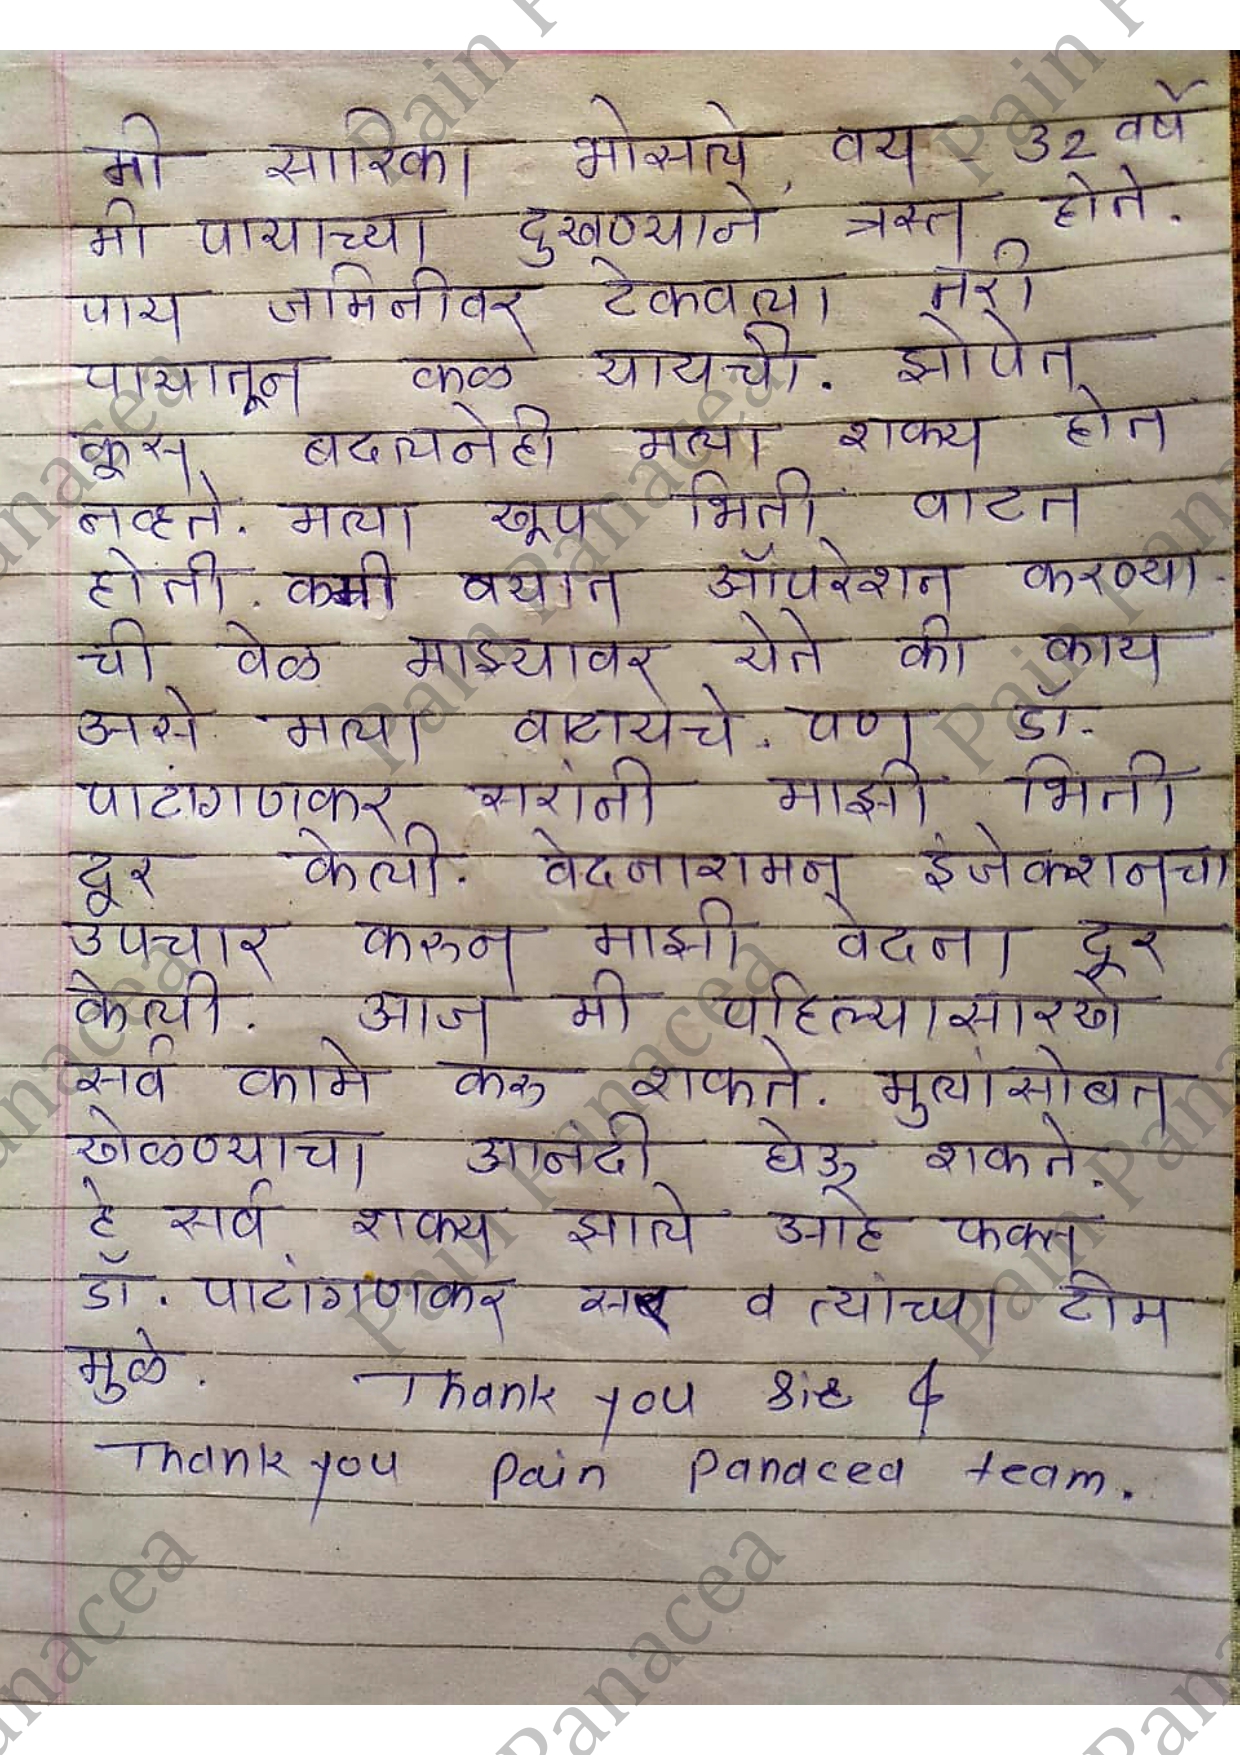 मी सारिका भोसले, वय - ३२ वर्षे
मी पायाच्या दुखण्याने त्रस्त होते.
पाय जमिनीवर टेकवला तरी
पायातून कळ यायची. झोपेत
कूस बदलनेही मला शक्य होत
नव्हते. मला खूप भिती वाटत
होती. कमी वयात ऑपरेशन करण्या-
ची वेळ माझ्यावर येते की काय
असे मला वाटायचे. पण डॉ.
पाटांगणकर सरांनी माझी भिती
दूर केली. वेदनाशमन इंजेक्शनचा
उपचार करुन माझी वेदना दूर
केली. आज मी पहिल्यासारखे
सर्व कामे करु शकते. मुलांसोबत
खेळण्याचा आनंदी घेऊ शकते.
हे सर्व शक्य झाले आहे फक्त
डॉ. पाटांगणकर सर व त्यांच्या टीम
मुळे. Thank you Sir &
Thank you Pain Panacea team.
Pain Panacea